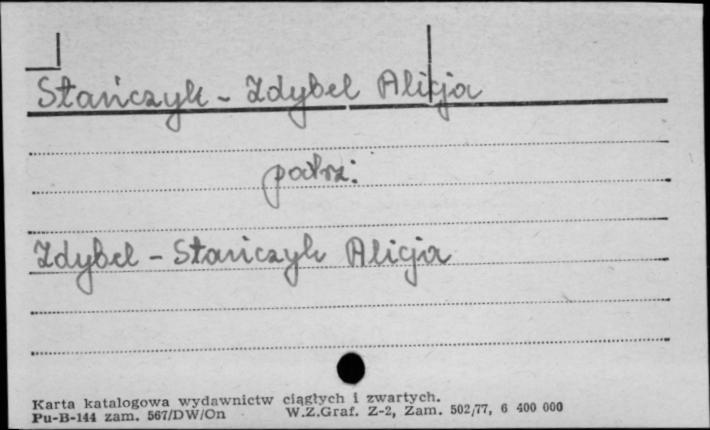 Stańczyk - Zdybel Alicja
patrz:
Zdybel - Stańczyk Alicja
Karta katalogowa wydawnictw ciągłych i zwartych.
Pu-B-144 zam. 567/DW/On W.Z.Graf. Z-2, Zam. 502/77, 6 400 000